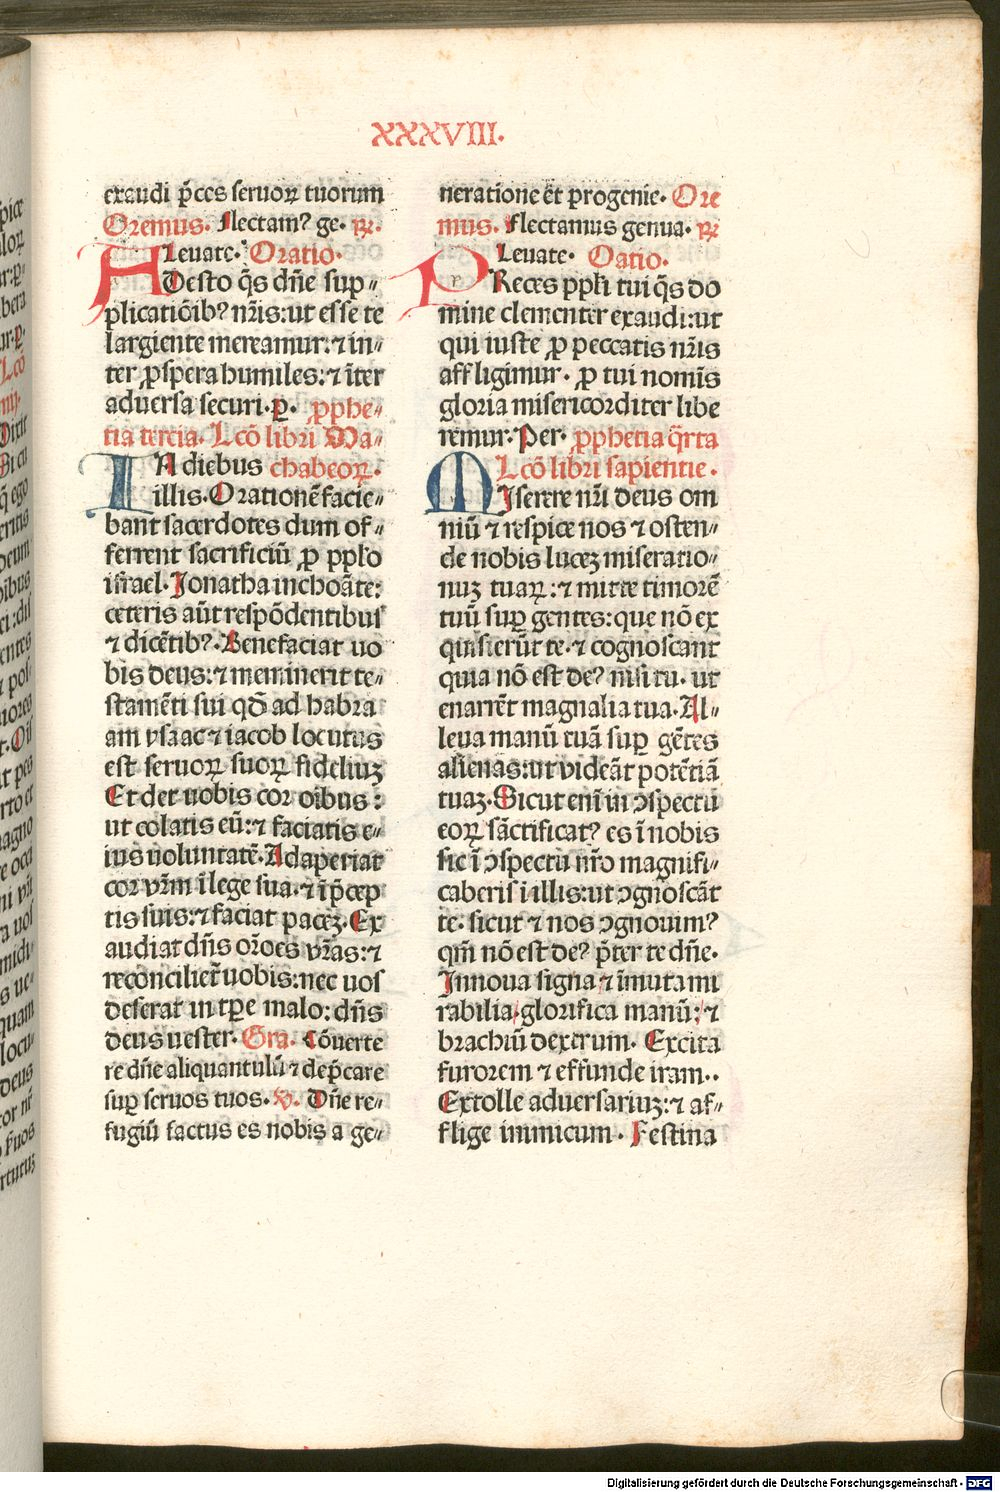 XXXVIII.
exaudi p̄ces seruoꝝ tuorum
Oremus. Flectam? ge. ꝶ.
Leuate. Oratio.
ADesto q̄s dn̄e sup〃
plicatiōib? nr̄is: ut esse te
largiente mereamur: ⁊ in〃
ter ꝓspera humiles: ⁊ īter
aduersa securi. ꝑ. ꝓphe〃
tia tercia. Lcō libri Ma〃
chabeoꝝ.
IN diebus
illis. Orationē facie〃
bant sacerdotes dum of〃
ferrent sacrificiū ꝓ pplo
isrl̄ael. Jonatha inchoāte:
ceteris aūt respōdentibus
⁊ dicētib?. Benefaciat uo
bis deus: ⁊ meminerit te〃
stamēti sui qd̄ ad habra
am ysaac ⁊ iacob locutus
est seruoꝝ suoꝝ fideliuꝫ
Et det uobis cor oībus:
ut colatis eū: ⁊ faciatis e〃
ius uoluntatē. Adaperiat
cor vr̄m ī lege sua. ⁊ ī p̄cep
tis suis: ⁊ faciat paceꝫ. Ex
audiat dn̄s or̄oēs vr̄as: ⁊
reconciliet̄ uobis: nec uos
deserat in tꝑe malo: dn̄s
deus uester. Gra. Cōuerte
re dn̄e aliquantulū ⁊ dep̄care
suꝑ seruos tuos. ℣. Dn̄e re〃
fugiū factus es nobis a ge〃
neratione ēt progenie. Ore
mus. Flectamus genua. ꝶ
Leuate. Oatio.
PReces ppl̄i tui q̄s do
mine clementer exaudi: ut
qui iuste ꝓ peccatis nr̄is
affligimur. ꝓ tui nomīs
gloria misericorditer libe
remur. Per. ꝓphetia q̄rta
Lcō libri sapientie.
MIserere nr̄i deus om
niū ⁊ respice nos ⁊ osten〃
de nobis luceꝫ miseratio〃
nuꝫ tuaꝝ: ⁊ mitte timorē
tuū suꝑ gentes: que nō ex
quisierūt te. ⁊ cognoscant
quia nō est de? nisi tu. ut
enarrēt magnalia tua. Al〃
leua manū tuā suꝑ gētes
alienas: ut videāt potētiā
tuaꝫ. Sicut enī in ꝯspectu
eoꝝ sāctificat? es ī nobis
sic ī ꝯspectu nr̄o magnifi〃
caberis ī illis: ut ꝯgnoscāt
te. sicut ⁊ nos ꝯgnouim?
qm̄ nō est de? p̄ter te dn̄e.
Innoua signa ⁊ īmuta mi
rabilia. glorifica manū: ⁊
brachiū dextrum. Excita
furorem ⁊ effunde iram..
Extolle aduersariuꝫ: ⁊ af〃
flige inimicum. Festina
Digitalisierung gefördert durch die Deutsche Forschungsgemeinschaft - DFG